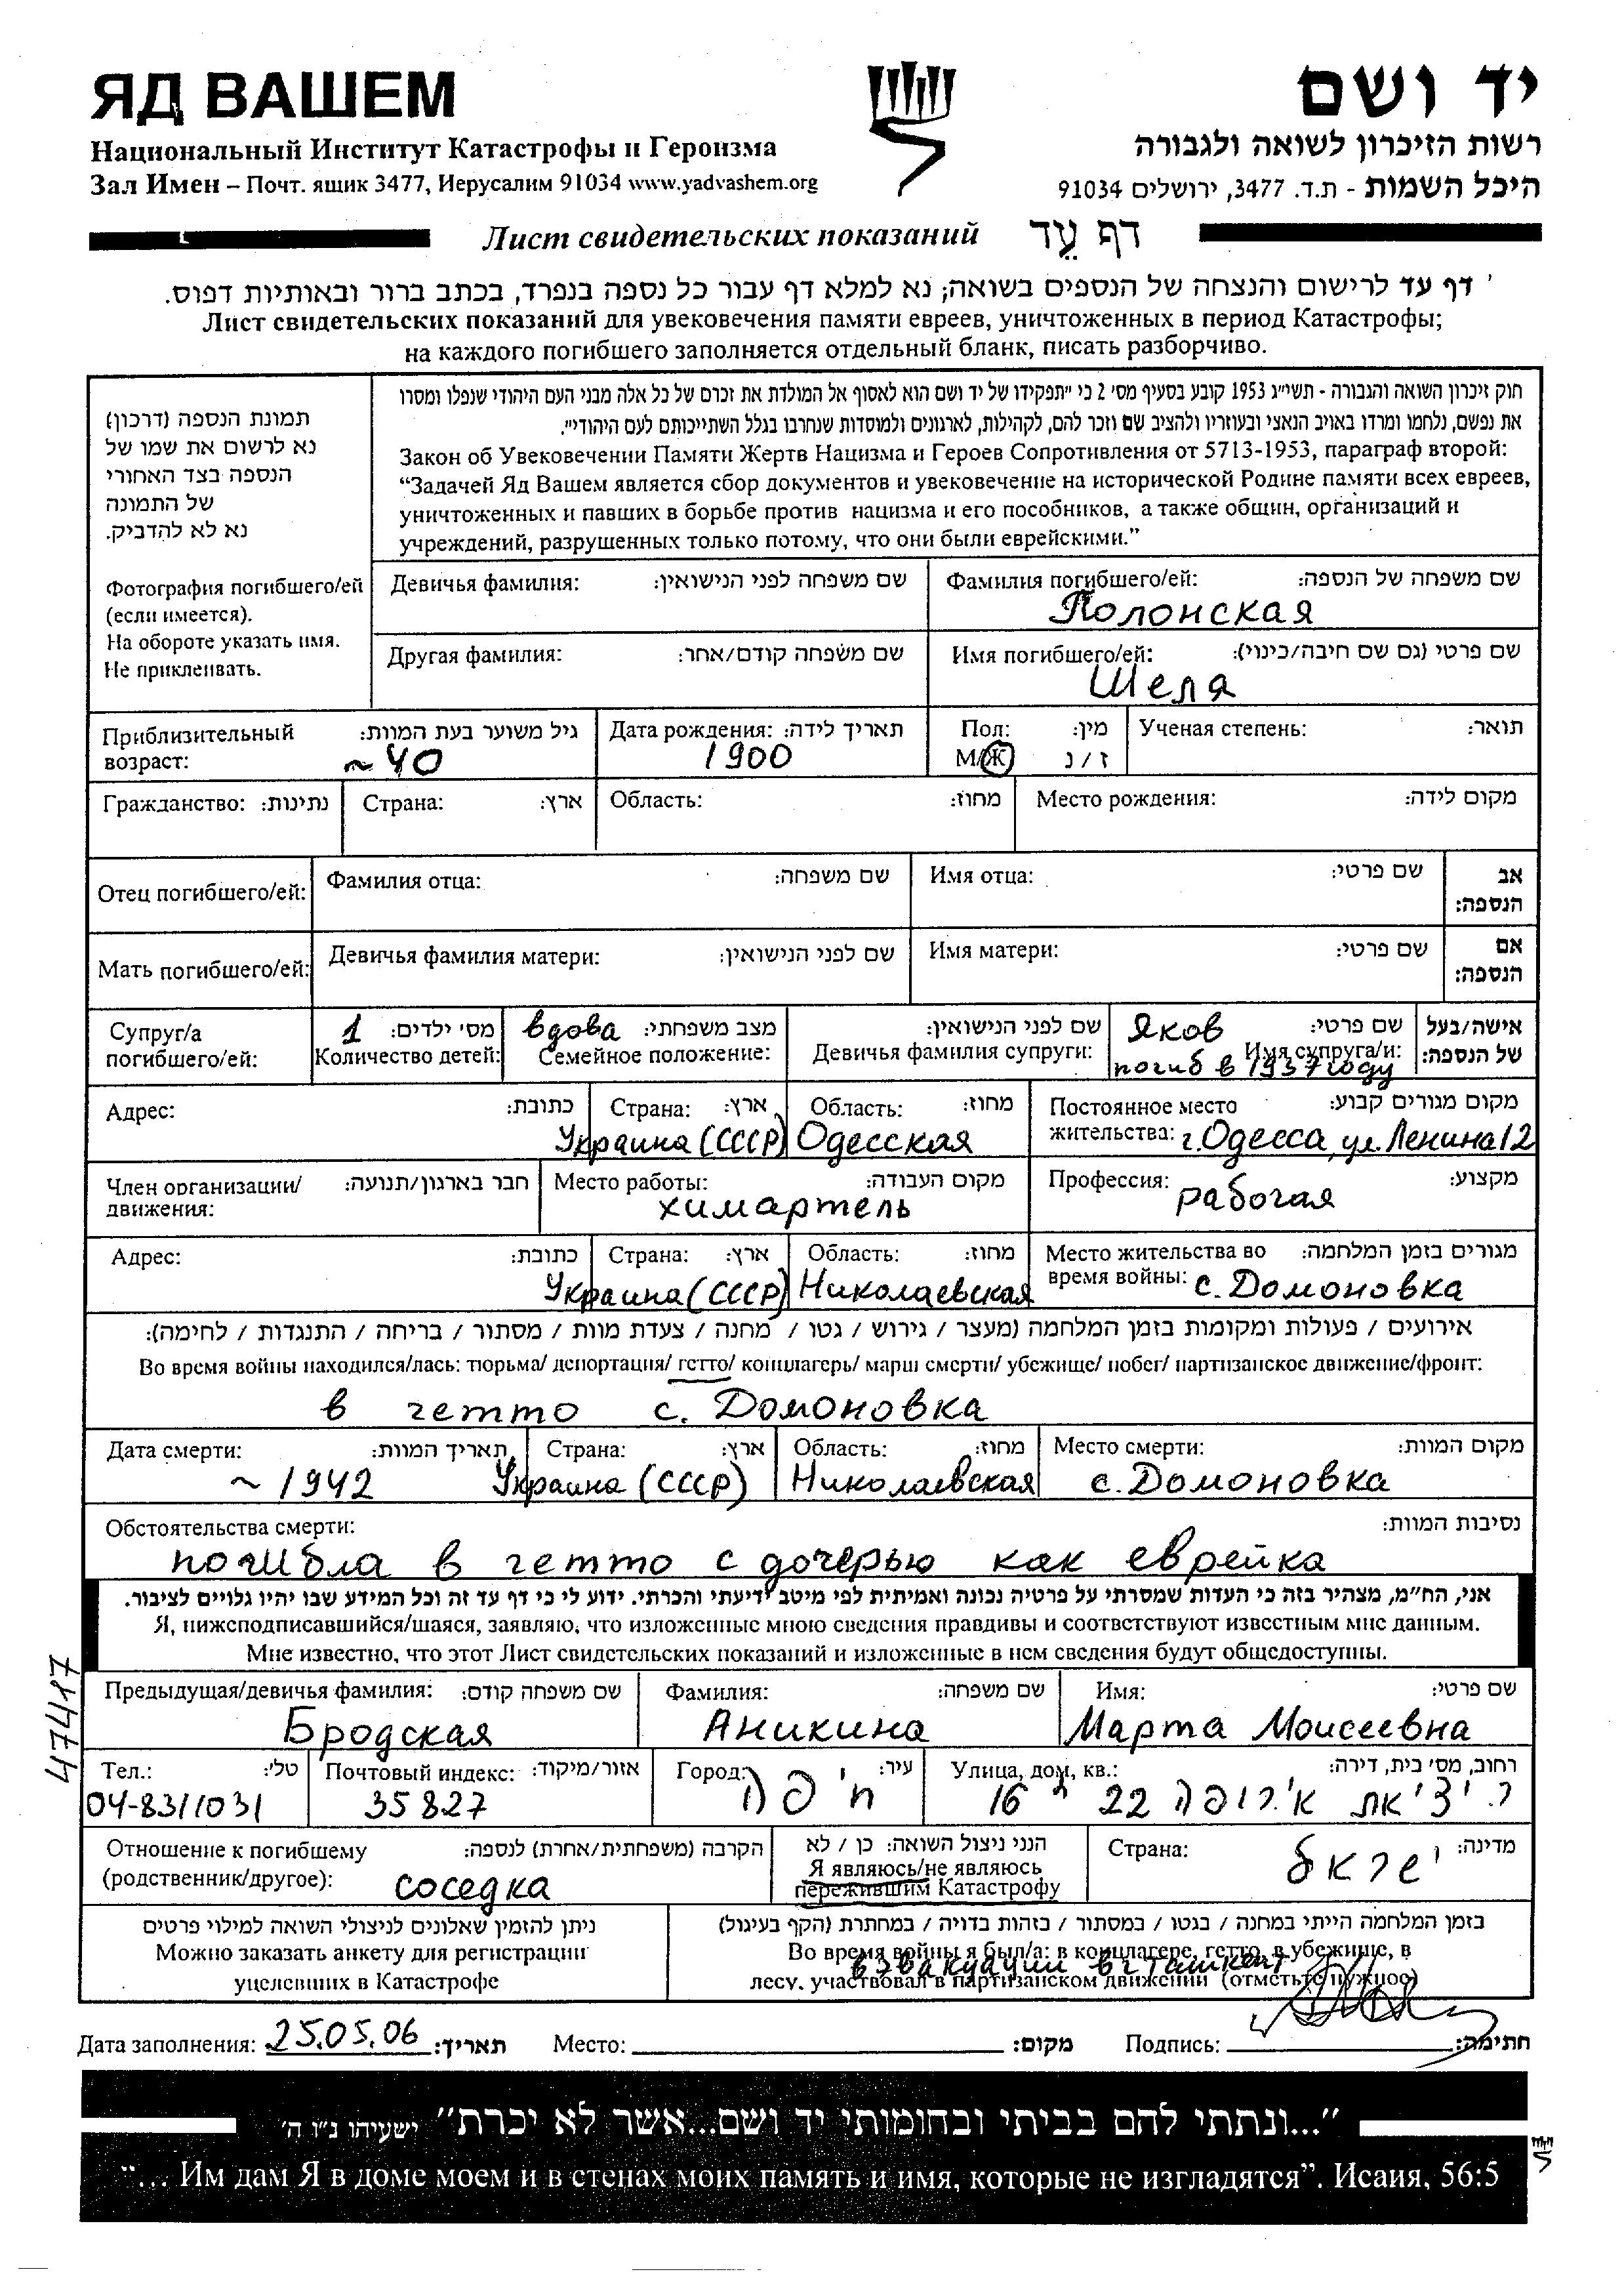 ЯД ВАШЕМ
יד ושם
Национальный Институт Катастрофы и Героизма
רשות הזיכרון לשואה ולגבורה
Зал Имен – Почт. ящик 3477, Иерусалим 91034 www.yadvashem.org
היכל השמות - ת.ד. 3477, ירושלים 91034
Лист свидетельских показаний דף עֵד
דף עד לרישום והנצחה של הנספים בשואה; נא למלא דף עבור כל נספה בנפרד, בכתב ברור ובאותיות דפוס.
Лист свидетельских показаний для увековечения памяти евреев, уничтоженных в период Катастрофы;
на каждого погибшего заполняется отдельный бланк, писать разборчиво.
תמונת הנספה (דרכון)
נא לרשום את שמו של
הנספה בצד האחורי
של התמונה
נא לא להדביק.
Фотография погибшего/ей
(если имеется).
На обороте указать имя.
Не приклеивать.
חוק זיכרון השואה והגבורה - תשי״ג 1953 קובע בסעיף מס׳ 2 כי ״תפקידו של יד ושם הוא לאסוף אל המולדת את זכרם של כל אלה מבני העם היהודי שנפלו ומסרו
את נפשם, נלחמו ומרדו באויב הנאצי ובעוזריו ולהציב שם וזכר להם, לקהילות, לארגונים ולמוסדות שנחרבו בגלל השתייכותם לעם היהודי״.
Закон об Увековечении Памяти Жертв Нацизма и Героев Сопротивления от 5713-1953, параграф второй:
“Задачей Яд Вашем является сбор документов и увековечение на исторической Родине памяти всех евреев,
уничтоженных и павших в борьбе против нацизма и его пособников, а также общин, организаций и
учреждений, разрушенных только потому, что они были еврейскими.”
Девичья фамилия: שם משפחה לפני הנישואין:
Фамилия погибшего/ей: שם משפחה של הנספה:
Полонская
Другая фамилия: שם משפחה קודם/אחר:
Имя погибшего/ей: שם פרטי (גם שם חיבה/כינוי):
Шеля
Приблизительный возраст: גיל משוער בעת המוות:
~ 40
Дата рождения: תאריך לידה:
1900
Пол: מין:
М/Ж ז / נ
Ученая степень: תואר:
Гражданство: נתינות:
Страна: ארץ:
Область: מחוז:
Место рождения: מקום לידה:
Отец погибшего/ей:
Фамилия отца: שם משפחה:
Имя отца: שם פרטי:
אב הנספה:
Мать погибшего/ей:
Девичья фамилия матери: שם לפני הנישואין:
Имя матери: שם פרטי:
אם הנספה:
Супруг/а погибшего/ей:
1 מס׳ ילדים:
Количество детей:
вдова מצב משפחתי:
Семейное положение:
שם לפני הנישואין:
Девичья фамилия супруги:
Яков שם פרטי:
Имя супруга/и:
погиб в 1937 году
אישה/בעל של הנספה:
Адрес: כתובת:
Страна: ארץ:
Украина (СССР)
Область: מחוז:
Одесская
Постоянное место מקום מגורים קבוע:
жительства: г. Одесса, ул. Ленина 12
Член организации/ движения: חבר בארגון/תנועה:
Место работы: מקום העבודה:
химартель
Профессия: מקצוע:
рабочая
Адрес: כתובת:
Страна: ארץ:
Украина (СССР)
Область: מחוז:
Николаевская
Место жительства во מגורים בזמן המלחמה:
время войны: с. Домоновка
אירועים / פעולות ומקומות בזמן המלחמה (מעצר / גירוש / גטו / מחנה / צעדת מוות / מסתור / בריחה / התנגדות / לחימה):
Во время войны находился/лась: тюрьма/ депортация/ гетто/ концлагерь/ марш смерти/ убежище/ побег/ партизанское движение/фронт:
в гетто с. Домоновка
Дата смерти: תאריך המוות:
~ 1942
Страна: ארץ:
Украина (СССР)
Область: מחוז:
Николаевская
Место смерти: מקום המוות:
с. Домоновка
Обстоятельства смерти: נסיבות המוות:
погибла в гетто с дочерью как еврейка
אני, הח״מ, מצהיר בזה כי העדות שמסרתי על פרטיה נכונה ואמיתית לפי מיטב ידיעתי והכרתי. ידוע לי כי דף עד זה וכל המידע שבו יהיו גלויים לציבור.
Я, нижеподписавшийся/шаяся, заявляю, что изложенные мною сведения правдивы и соответствуют известным мне данным.
Мне известно, что этот Лист свидетельских показаний и изложенные в нем сведения будут общедоступны.
47417
Предыдущая/девичья фамилия: שם משפחה קודם:
Бродская
Фамилия: שם משפחה:
Аникина
Имя: שם פרטי:
Марта Моисеевна
Тел.: טל׳:
04-8311031
Почтовый индекс: אזור/מיקוד:
35827
Город: עיר:
חיפה
Улица, дом, кв.: רחוב, מס׳ בית, דירה:
ר. יציאת אירופה 22 16
Отношение к погибшему הקרבה (משפחתית/אחרת) לנספה:
(родственник/другое): соседка
הנני ניצול השואה: כן / לא
Я являюсь/не являюсь
пережившим Катастрофу
Страна: מדינה:
ישראל
ניתן להזמין שאלונים לניצולי השואה למילוי פרטים
Можно заказать анкету для регистрации
уцелевших в Катастрофе
בזמן המלחמה הייתי במחנה / בגטו / במסתור / בזהות בדויה / במחתרת (הקף בעיגול)
Во время войны я был/а: в концлагере, гетто, в убежище, в
в эвакуации в г Ташкент
лесу, участвовал в партизанском движении (отметьте нужное)
Дата заполнения: 25.05.06 תאריך:
Место: מקום:
Подпись: חתימה:
״...ונתתי להם בביתי ובחומותי יד ושם...אשר לא יכרת״ ישעיהו נ״ו ה׳
“... Им дам Я в доме моем и в стенах моих память и имя, которые не изгладятся”. Исаия, 56:5